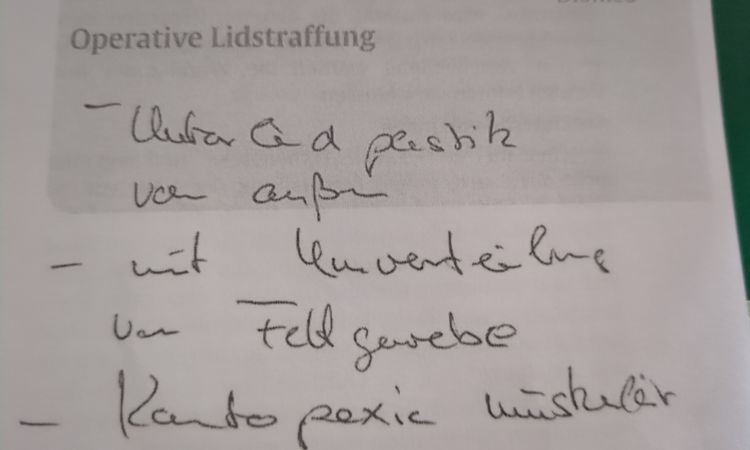 Operative Lidstraffung
– Unterlidplastik
von außen
– mit Umverteilung
von Fettgewebe
– Kantopexie muskulär